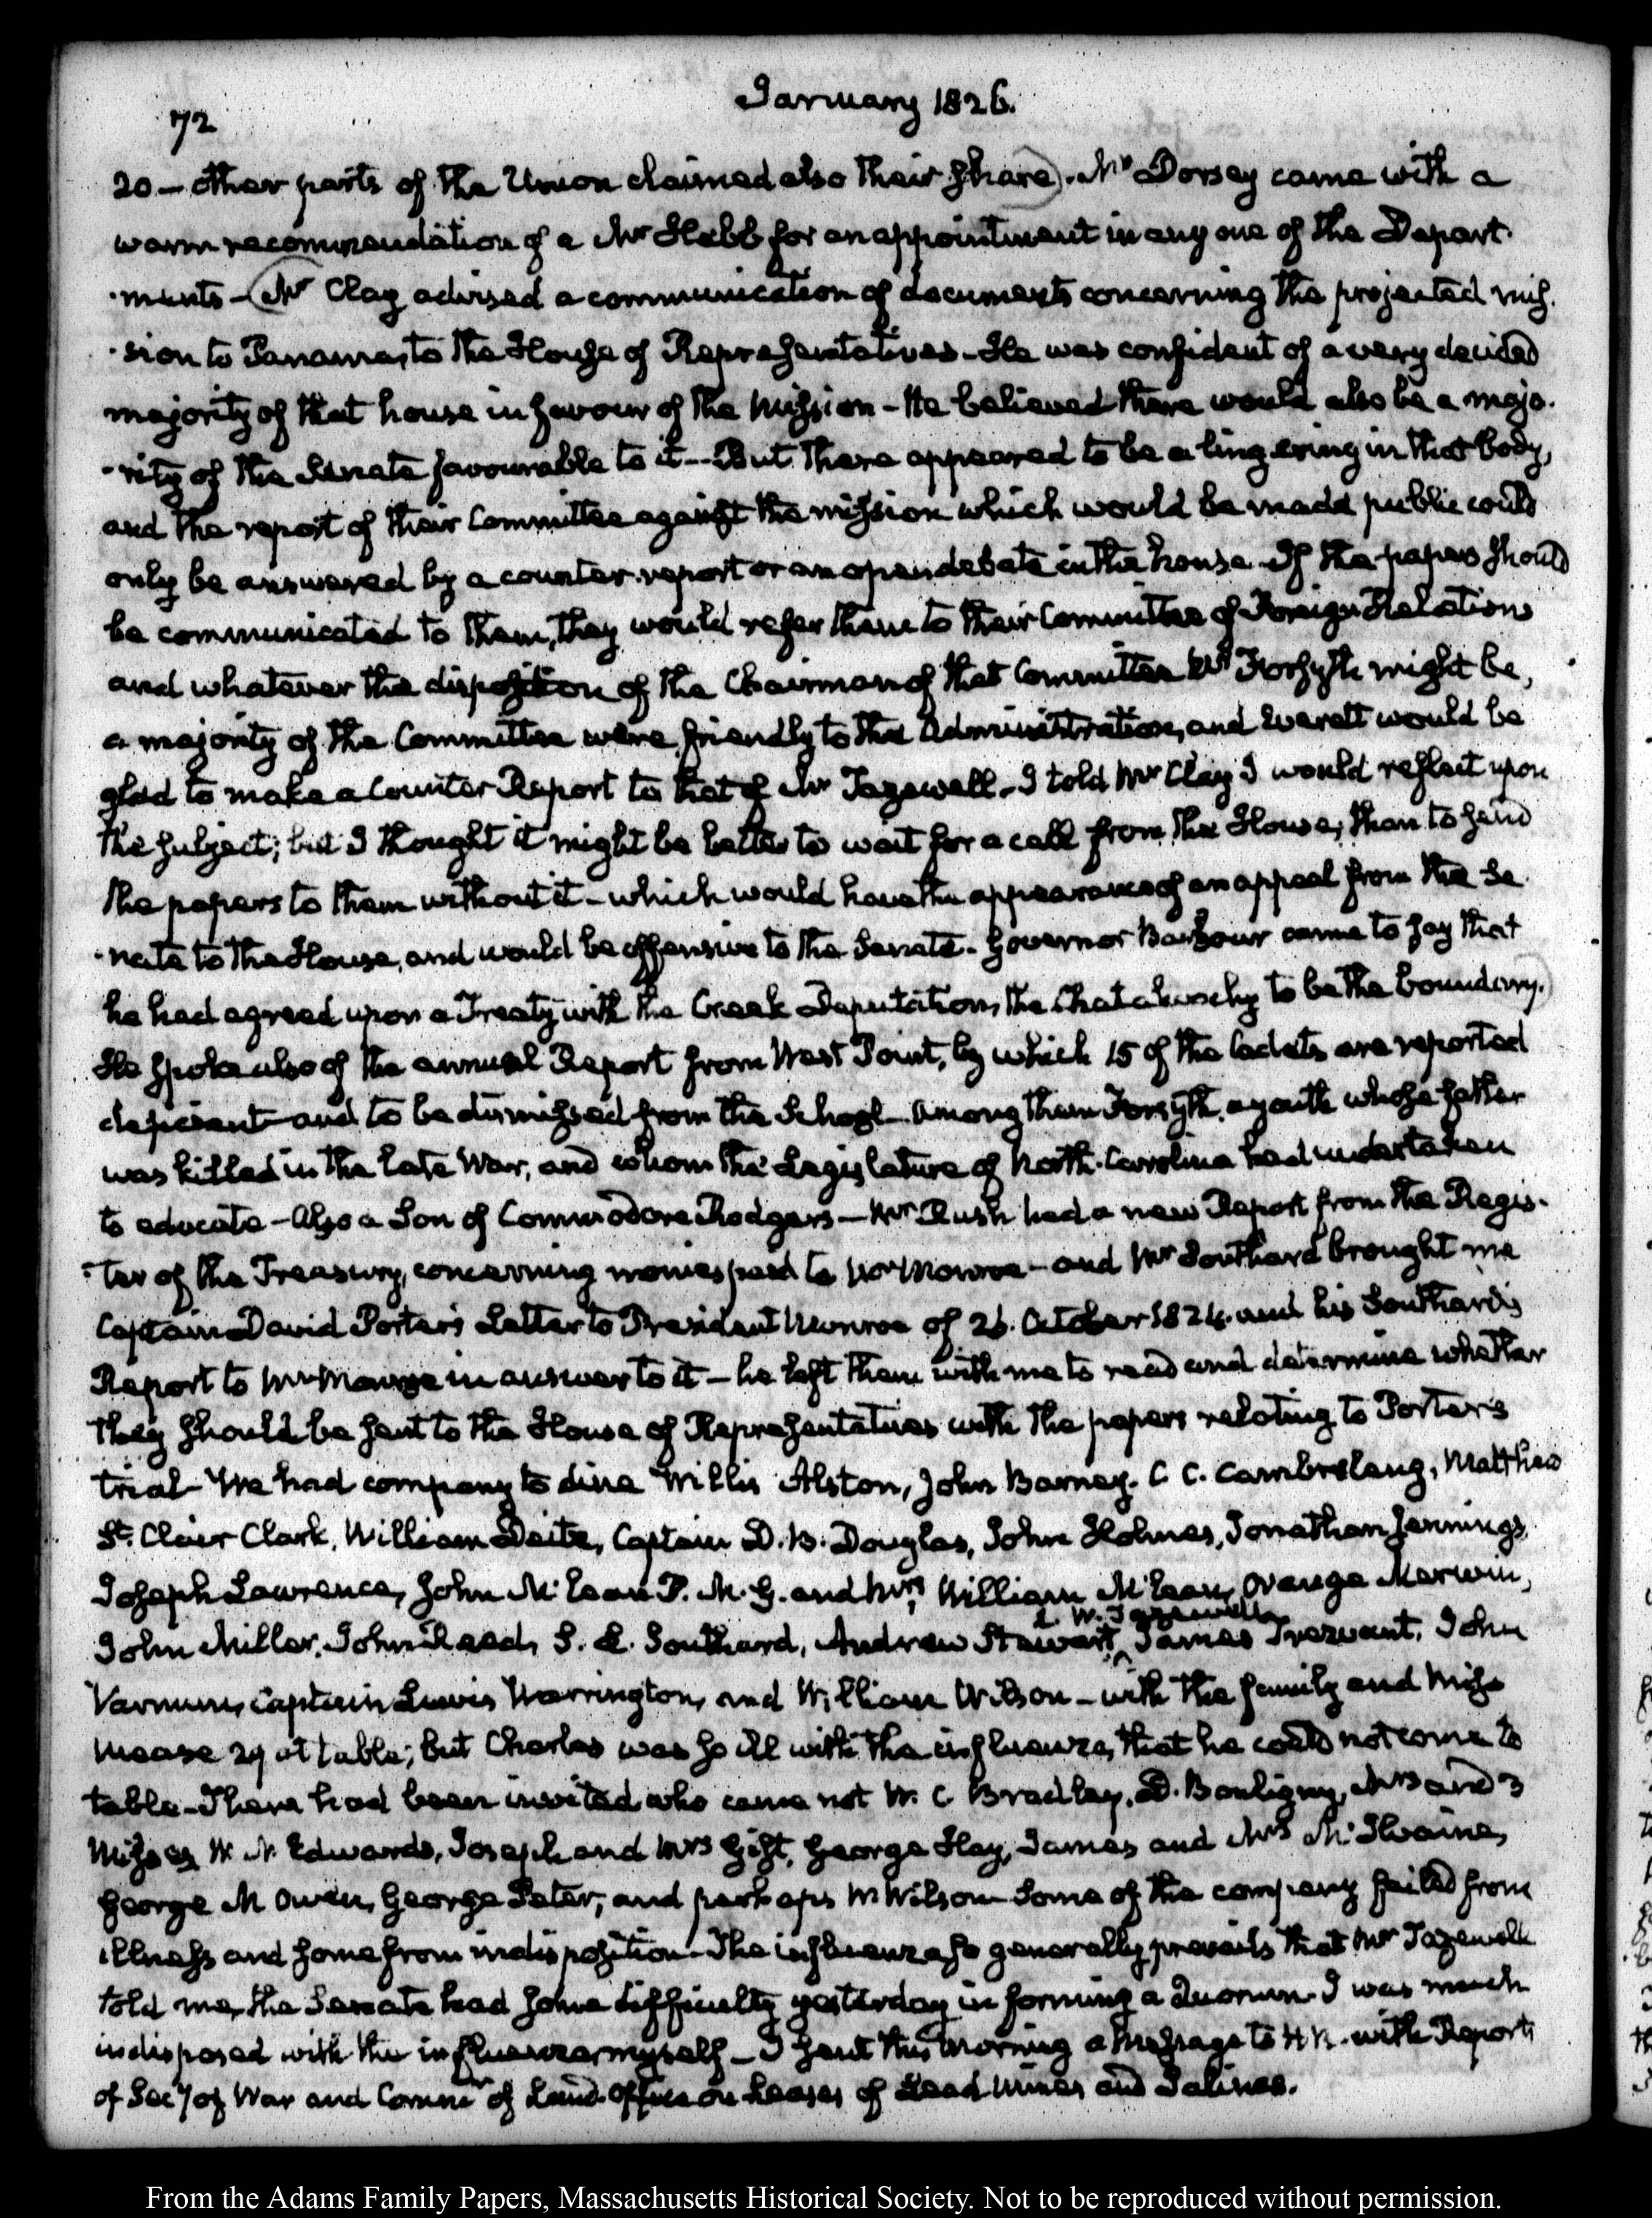 72
January 1826.
20 — other parts of the Union claimed also their share). Mr Dorsey came with a
warm recommendation of a Mr Hebb for an appointment in any one of the Depart-
-ments — (Mr Clay advised a communication of documents concerning the projected mis-
-sion to Panama, to the House of Representatives — He was confident of a very decided
majority of that house in favour of the Mission — He believed there would also be a majo-
-rity of the Senate favourable to it — But there appeared to be a lingering in that body,
and the report of their Committee against the mission which would be made public could
only be answered by a counter-report or an open debate in the house. If the papers should
be communicated to them, they would refer them to their Committee of Foreign Relations
and whatever the disposition of the Chairman of that Committee Mr Forsyth might be,
a majority of the Committee were friendly to the Administration, and Everett would be
glad to make a Counter Report to that of Mr Tazewell. I told Mr Clay I would reflect upon
the subject; but I thought it might be better to wait for a call from the House, than to send
the papers to them without it — which would have the appearance of an appeal from the Se-
-nate to the House, and would be offensive to the Senate. Governor Barbour came to say that
he had agreed upon a Treaty with the Creek Deputation, the Chatahoochy to be the boundary.)
He spoke also of the annual Report from West Point, by which 15 of the Cadets are reported
deficient and to be dismissed from the School — among them Forsyth, a youth whose father
was killed in the late War, and whom the Legislature of North-Carolina had undertaken
to educate — Also a Son of Commodore Rodgers — Mr Rush had a new Report from the Regis-
-ter of the Treasury, concerning monies paid to Mr Monroe — and Mr Southard brought me
Captain David Porter's Letter to President Monroe of 26. October 1824. and his Southard's
Report to Mr Monroe in answer to it — he left them with me to read and determine whether
they should be sent to the House of Representatives with the papers relating to Porter's
trial — We had company to dine Willis Alston, John Barney. C C. Cambreleng, Matthew
St. Clair Clark, William Deitz, Captain D. B. Douglas, John Holmes, Jonathan Jennings
Joseph Lawrence, John McLean P. M. G. and Mrs, William McLean, Orange Merwin,
John Miller, John Reed, S. L. Southard, Andrew Stewart, L. W. Tazewell, James Trezvant, John
Varnum, Captain Lewis Warrington, and William Wilson — with the family and Miss
Mease 24 at table; but Charles was so ill with the influenza, that he could not come to
table — There had been invited who came not W. C Bradley, D. Bouligny, Mrs and 3
Misses, W. N. Edwards, Joseph and Mrs Gist, George Hay, James and Mrs McIlvaine,
George M Owen, George Peter, and perhaps M Wilson. Some of the company failed from
illness and some from indisposition — The influenza so generally prevails that Mr Tazewell
told me, the Senate had some difficulty yesterday in forming a Quorum. I was much
indisposed with the influenza myself — I sent this morning a Message to H R. with Reports
of Secy of War and Commr of Land Office on Leases of Lead Mines and Salines.
From the Adams Family Papers, Massachusetts Historical Society. Not to be reproduced without permission.